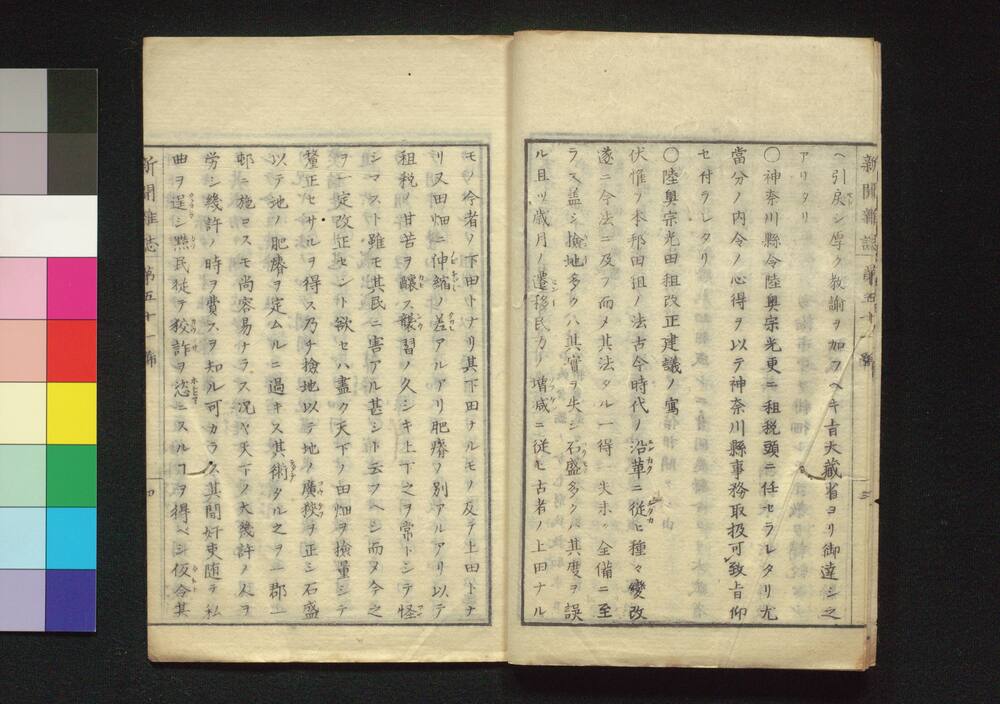 新聞雜誌 第五十一號 三
ヘ引戻シ厚ク教諭ヲ加フヘキ旨大藏省ヨリ御達シ之
アリタリ
〇神奈川縣令陸奥宗光更ニ租税頭ニ任セラレタリ尤
當分ノ内令ノ心得ヲ以テ神奈川縣事務取扱可致旨仰
セ付ラレタリ
〇陸奥宗光田租改正建議ノ寫
伏惟ノ本邦田租ノ法古今時代ノ沿革ニ從ヒ種々變改
遂ニ今法ニ及フ而メ其法タル一得一失未タ全備ニ至
ラス盖シ撿地多クハ其實ヲ失シ石盛多クハ其度ヲ誤
ル且ツ歳月ノ遷移民力ノ増减ニ従ヒ古者ノ上田ナル
モノ今者ノ下田トナリ其下田ナルモノ反テ上田トナ
リ又田畑ニ伸縮ノ差アルアリ肥瘠ノ別アルアリ以テ
租税ノ甘苦ヲ釀ス襲習ノ久シキ上下之ヲ常トシテ怪
シマスト雖モ其民ニ害アル甚シト云フヘシ而ヌ今之
ヲ一定改正セント欲セハ盡ク天下ノ田畑ヲ撿量シテ
釐正セサルヲ得ス乃チ撿地以テ地ノ廣狹ヲ正シ石盛
以テ地ノ肥瘠ヲ定ムルニ過キス其術タル之ヲ一郡一
邨ニ施コスモ尚容易ナラス况ヤ天下ノ大幾許ノ人ヲ
労シ幾許ノ時ヲ費スヲ知ル可カラス其間奸吏随テ私
曲ヲ逞シ黠民徒ヲ狡詐ヲ恣ニスルヿヲ得ベシ仮令其
新聞雜誌 第五十一號 四